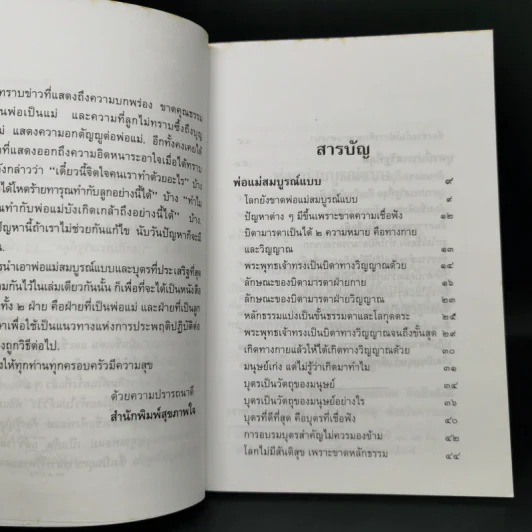 ทราบข่าวที่แสดงถึงความบกพร่อง ขาดคุณธรรม
นพ่อเป็นแม่ และความที่ลูกไม่ทราบซึ้งถึงบุญ
ม่ แสดงความอกตัญญูต่อพ่อแม่. อีกทั้งคงเคยได้
ที่แสดงออกถึงความอิดหนาระอาใจเมื่อได้ทราบ
ังกล่าวว่า "เดี๋ยวนี้จิตใจคนเราทำด้วยอะไร" บ้าง
ได้โหดร้ายทารุณทำกับลูกอย่างนี้ได้" บ้าง "ทำไม
ทำกับพ่อแม่บังเกิดเกล้าถึงอย่างนี้ได้" บ้าง.
ปัญหานี้ถ้าเราไม่ช่วยกันแก้ไข นับวันปัญหาก็จะมี
น.
รนำเอาพ่อแม่สมบูรณ์แบบและบุตรที่ประเสริฐที่สุด
มกันไว้ในเล่มเดียวกันนั้น ก็เพื่อที่จะได้เป็นหนังสือ
ทั้ง ๒ ฝ่าย คือฝ่ายที่เป็นพ่อแม่ และฝ่ายที่เป็นลูก
าเพื่อใช้เป็นแนวทางแห่งการประพฤติปฏิบัติต่อ
งถูกวิธีต่อไป.
งให้ทุกท่านทุกครอบครัวมีความสุข
ด้วยความปรารถนาดี
สำนักพิมพ์สุขภาพใจ
สารบัญ
พ่อแม่สมบูรณ์แบบ ๙
โลกยังขาดพ่อแม่สมบูรณ์แบบ ๙
ปัญหาต่าง ๆ มีขึ้นเพราะขาดความเชื่อฟัง ๑๒
บิดามารดาเป็นได้ ๒ ความหมาย คือทางกาย
และวิญญาณ ๑๓
พระพุทธเจ้าทรงเป็นบิดาทางวิญญาณด้วย ๑๔
ลักษณะของบิดามารดาฝ่ายกาย ๑๖
ลักษณะของบิดามารดาฝ่ายวิญญาณ ๒๓
หลักธรรมแบ่งเป็นชั้นธรรมดาและโลกุตตระ ๒๕
พระพุทธเจ้าทรงเป็นบิดาทางวิญญาณจนถึงขั้นสุด ๒๙
เกิดทางกายแล้วให้ได้เกิดทางวิญญาณด้วย ๓๐
มนุษย์เก่ง แต่ไม่รู้ว่าเกิดมาทำไม ๓๑
บุตรเป็นวัตถุของมนุษย์ ๓๔
บุตรเป็นวัตถุของมนุษย์อย่างไร ๓๖
บุตรที่ดีที่สุด คือบุตรที่เชื่อฟัง ๔๐
การอบรมบุตรสำคัญไม่ควรมองข้าม ๔๒
โลกไม่มีสันติสุข เพราะขาดหลักธรรม ๔๔